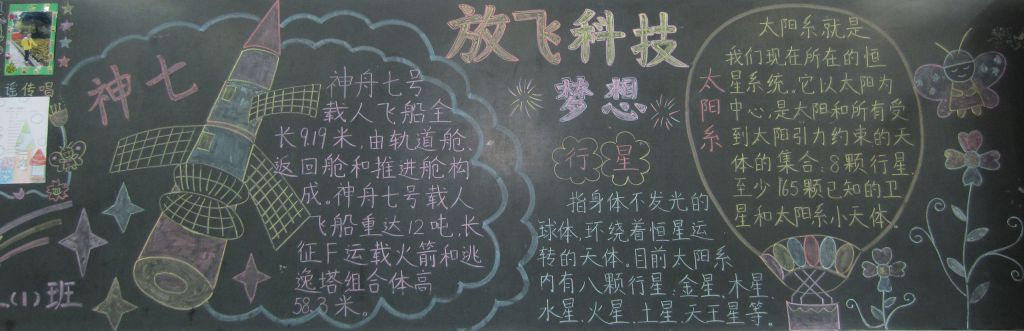 遥传唱
(1)班
神七
神舟七号
载人飞船全
长9.19米，由轨道舱、
返回舱和推进舱构
成。神舟七号载人
飞船重达12吨，长
征F运载火箭和逃
逸塔组合体高
58.3米。
放飞科技
梦想
行星
指身体不发光的
球体，环绕着恒星运
转的天体。目前太阳系
内有八颗行星：金星、木星、
水星、火星、土星、天王星等。
太阳系
太阳系就是
我们现在所在的恒
星系统。它以太阳为
中心，是太阳和所有受
到太阳引力约束的天
体的集合：8颗行星、
至少165颗已知的卫
星和太阳系小天体。